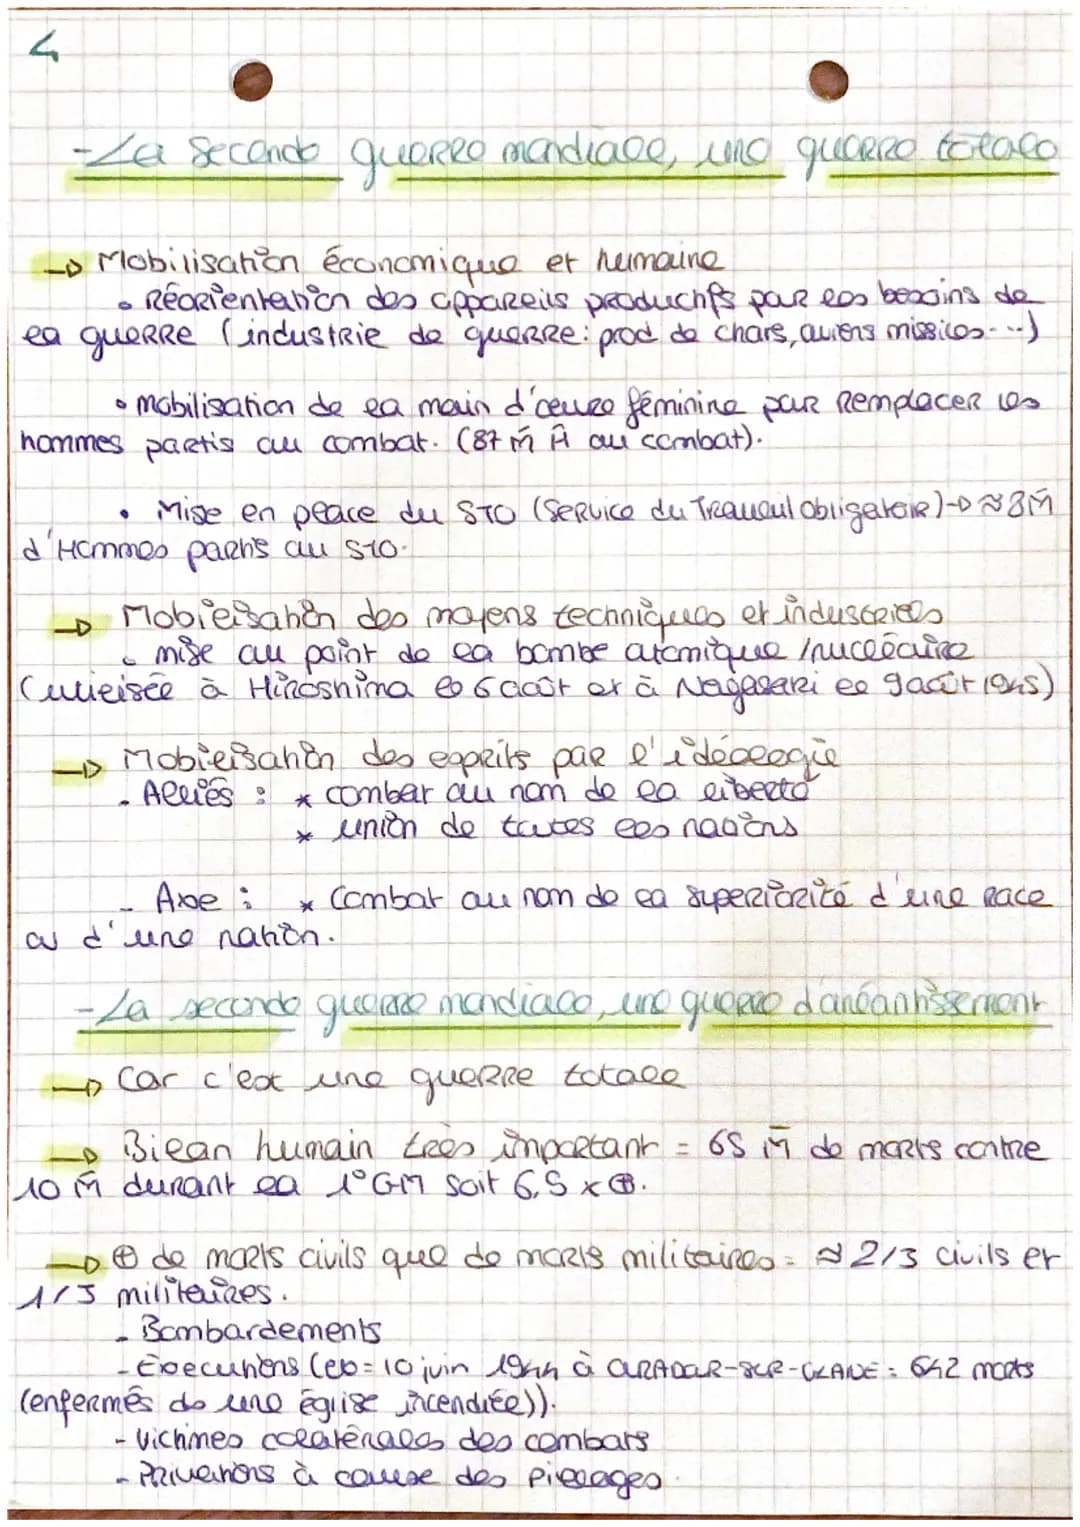 4
- La seconde guerre mondiale, une guerre totale
→ Mobilisation économique et humaine
• Réorientation des appareils productifs par les besoins de
la guerre (industrie de guerre : prod de chars, avions missiles...)
• mobilisation de la main d'œuvre féminine pour remplacer les
hommes partis au combat. (87 M̄ H̄ au combat).
• Mise en place du STO (Service du Travail Obligatoire) → ≈ 8 M̄
d'Hommes partis au STO.
→ Mobilisation des moyens techniques et industriels
• mise au point de la bombe atomique / nucléaire
(utilisée à Hiroshima le 6 août et à Nagasaki le 9 août 1945)
→ Mobilisation des esprits par l'idéologie
- Alliés : * combat au nom de la liberté
* union de toutes les nations
- Axe : * Combat au nom de la supériorité d'une race
ou d'une nation.
- La seconde guerre mondiale, une guerre d'anéantissement
→ Car c'est une guerre totale
→ Bilan humain très important = 65 M̄ de morts contre
10 M̄ durant la 1° GM soit 6,5 x ⊕.
→ ⊕ de morts civils que de morts militaires = ≈ 2/3 civils et
1/3 militaires.
- Bombardements
- Executions (ex = 10 juin 1944 à ORADOUR-SUR-GLANE : 642 morts
(enfermés ds une église incendiée)).
- Victimes colatérales des combats
- Privations à cause des pillages.